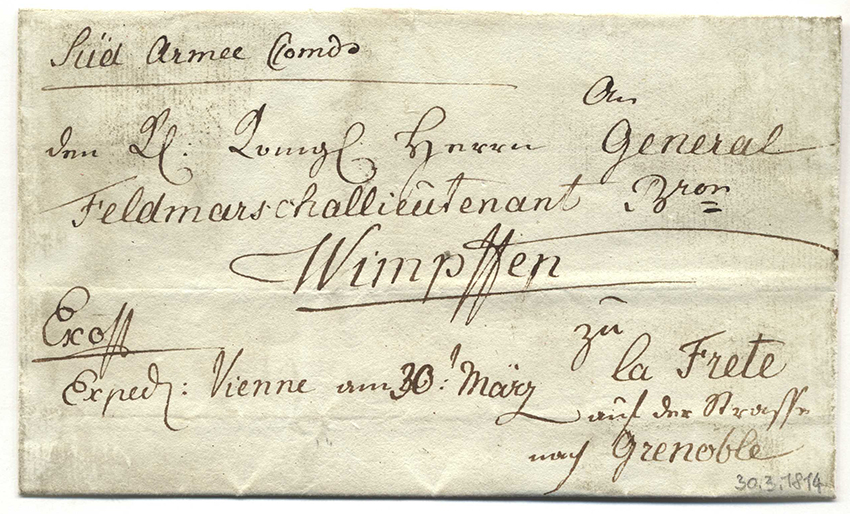 Süd Armee Comdo
An
den K. Königl Herrn General
Feldmarschallieutenant Bron
Wimpffen
Exoff
zu
la Frete
Exped: Vienne am 30t März
auf der Strasse
nach Grenoble
30.3.1814